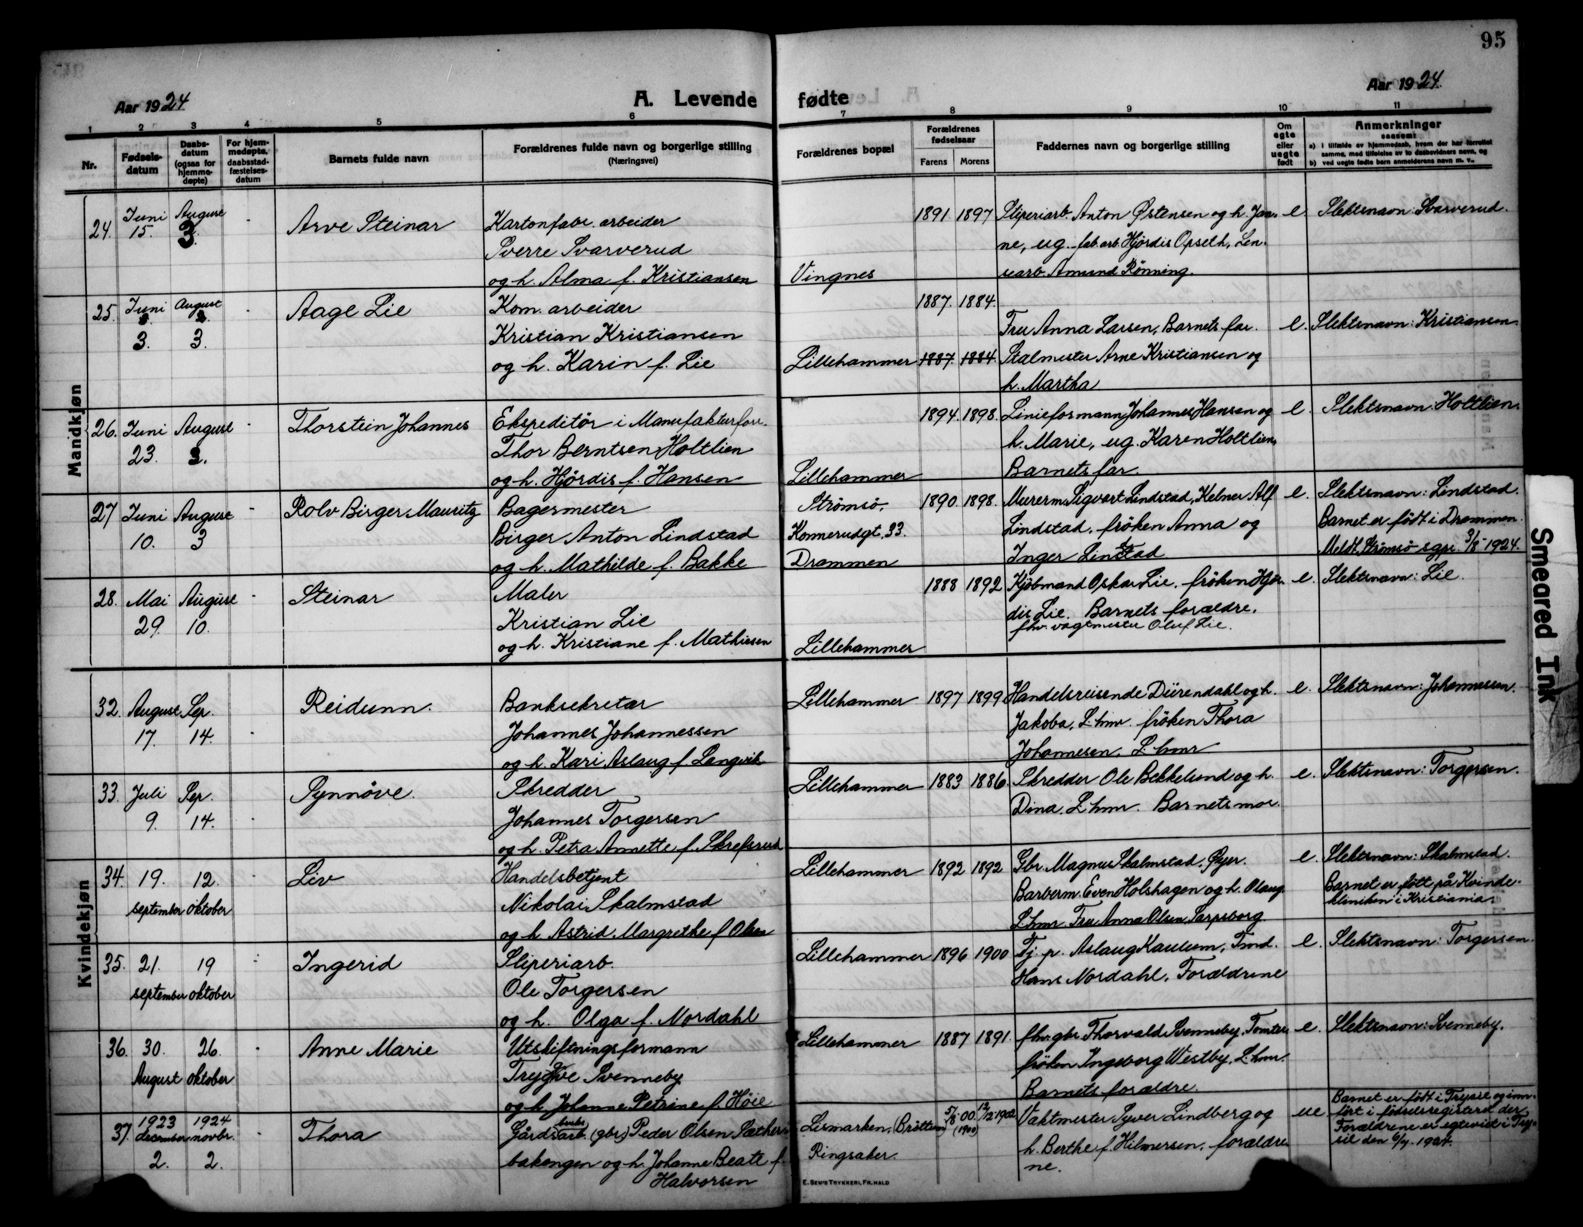 95
Aar 1924
A. Levende fødte
Aar 1924
1 2 3 4 5 6 7 8 9 10 11
Nr.
Fødsels-
datum
Daabs-
datum
(ogsaa for
hjemme-
døpte)
For hjem-
medøpte,
daabsstad-
fæstelses-
datum
Barnets fulde navn
Forældrenes fulde navn og borgerlige stilling
(Næringsvei)
Forældrenes bopæl
Forældrenes
fødselsaar
Farens Morens
Faddernes navn og borgerlige stilling
Om
egte
eller
uegte
født
Anmerkninger
saasom:
a) I tilfælde av hjemmedaab, hvem der har forrettet
samme, med tilføielse av to daabsvidners navn, og
b) ved uegte fødte barn anmelderens navn m. v.
Mandkjøn
24. Juni August - Arve Steinar Kartonfabr. arbeider
15. 3.
Sverre Svarverud
og h. Alma f. Kristiansen
Vingnes
1891 1897 Sliperiarb. Anton Østensen og h. Jen-
ne, ug. fab.arb. Hjørdis Opseth, Len-
searb. Amund Rønning.
e. Slektsnavn: Svarverud.
25. Juni August - Aage Lie Kom. arbeider
3. 3.
Kristian Kristiansen
og h. Karin f. Lie
Lillehammer
1887. 1884.
1887 1884.
Fru Anna Larsen, Barnets far.
Stalmester Arne Kristiansen og
h. Martha
e. Slektsnavn: Kristiansen
26. Juni August - Thorstein Johannes Ekspeditør i Manufakturforr.
23. 3.
Thor Berntsen Holtlien
og h. Hjørdis f. Hansen
Lillehammer
1894. 1898. Linieformann Johannes Hansen og
h. Marie, ug. Karen Holtlien,
Barnets far
e. Slektsnavn: Holtlien.
27 Juni August - Rolv Birger Mauritz Bagermester
10. 3
Birger Anton Lindstad
og h. Mathilde f. Bakke
Strømsø,
Konnerudgt. 33.
Drammen
1890. 1898. Murerm. Sigvart Lindstad, Kelner Alf
Lindstad, frøken Anna og
Inger Lindstad
e. Slektsnavn: Lindstad.
Barnet er født i Drammen.
Meldt Strømsø sgpr. 3/8 1924.
28. Mai August - Steinar Maler
29. 10.
Kristian Lie
og h. Kristiane f. Mathiesen
Lillehammer
1888 1892 Kjøbmand Oskar Lie, frøken Hjør-
dis Lie. Barnets forældre,
fhv. vogmester Oluf Lie.
e. Slektsnavn: Lie.
Kvindekjøn
32. August Sep. - Reidunn. Banksekretær
17. 14.
Johannes Johannessen
og h. Kari Aslaug f. Langvik
Lillehammer 1897 1899 Handelsreisende Diirendahl og h.
Jakoba, L.hmr. frøken Thora
Johannesen, L.hmr
e. Slektsnavn: Johannessen.
33. Juli Sep. - Synnøve. Skredder
9. 14.
Johannes Torgersen
og h. Petra Annette f. Skrefsrud
Lillehammer 1883 1886 Skredder Ole Bekkelund og h.
Dina, L.hmr. Barnets mor.
e. Slektsnavn: Torgersen.
34. 19. 12. - Liv Handelsbetjent
september oktober
Nikolai Skalmstad
og h. Astrid Margrethe f. Olsen
Lillehammer 1892 1892 Gbr. Magnus Skalmstad, Øyer.
Barberm. Even Holshagen og h. Olaug
L.hmr Fru Anna Olsen Sarpsborg
e. Slektsnavn: Skalmstad.
Barnet er født på Kvinde-
kliniken i Kristiania.
35. 21. 19 Ingerid Sliperiarb.
september oktober
Ole Torgersen
og h. Olga f. Nordahl
Lillehammer 1896 1900 Tj. p. Aslaug Kaulum,
Hans Nordahl, Forældrene
e. Slektsnavn: Torgersen.
36. 30. 26. - Anne Marie Utskiftningsformann
August oktober
Trygve Svenneby
og h. Johanne Petrine f. Høie
Lillehammer 1887 1891. fhv. gbr. Thorvald Svenneby, Tomter
frøken Ingeborg Westby, L.hmr
Barnets forældre
e. Slektsnavn: Svenneby.
37. 1923 1924 - Thora
december novbr.
2. 2.
Gårdsarb. (gbr.) Peder Olsen Sæther-
bakengen og h. Johanne Beate f.
Halvorsen
Lismarken,
Ringsaker.
Vaktmester Syver Lindberg og
h. Berthe f. Hilmersen, forældre-
ne.
ue
Barnet er født i Trysil og inn-
ført i fødselsregisteret der
Forældrene er egteviet i Try-
sil den 6/4. 1924.
E. Sem's Trykkeri, Fr.hald
Smeared Ink